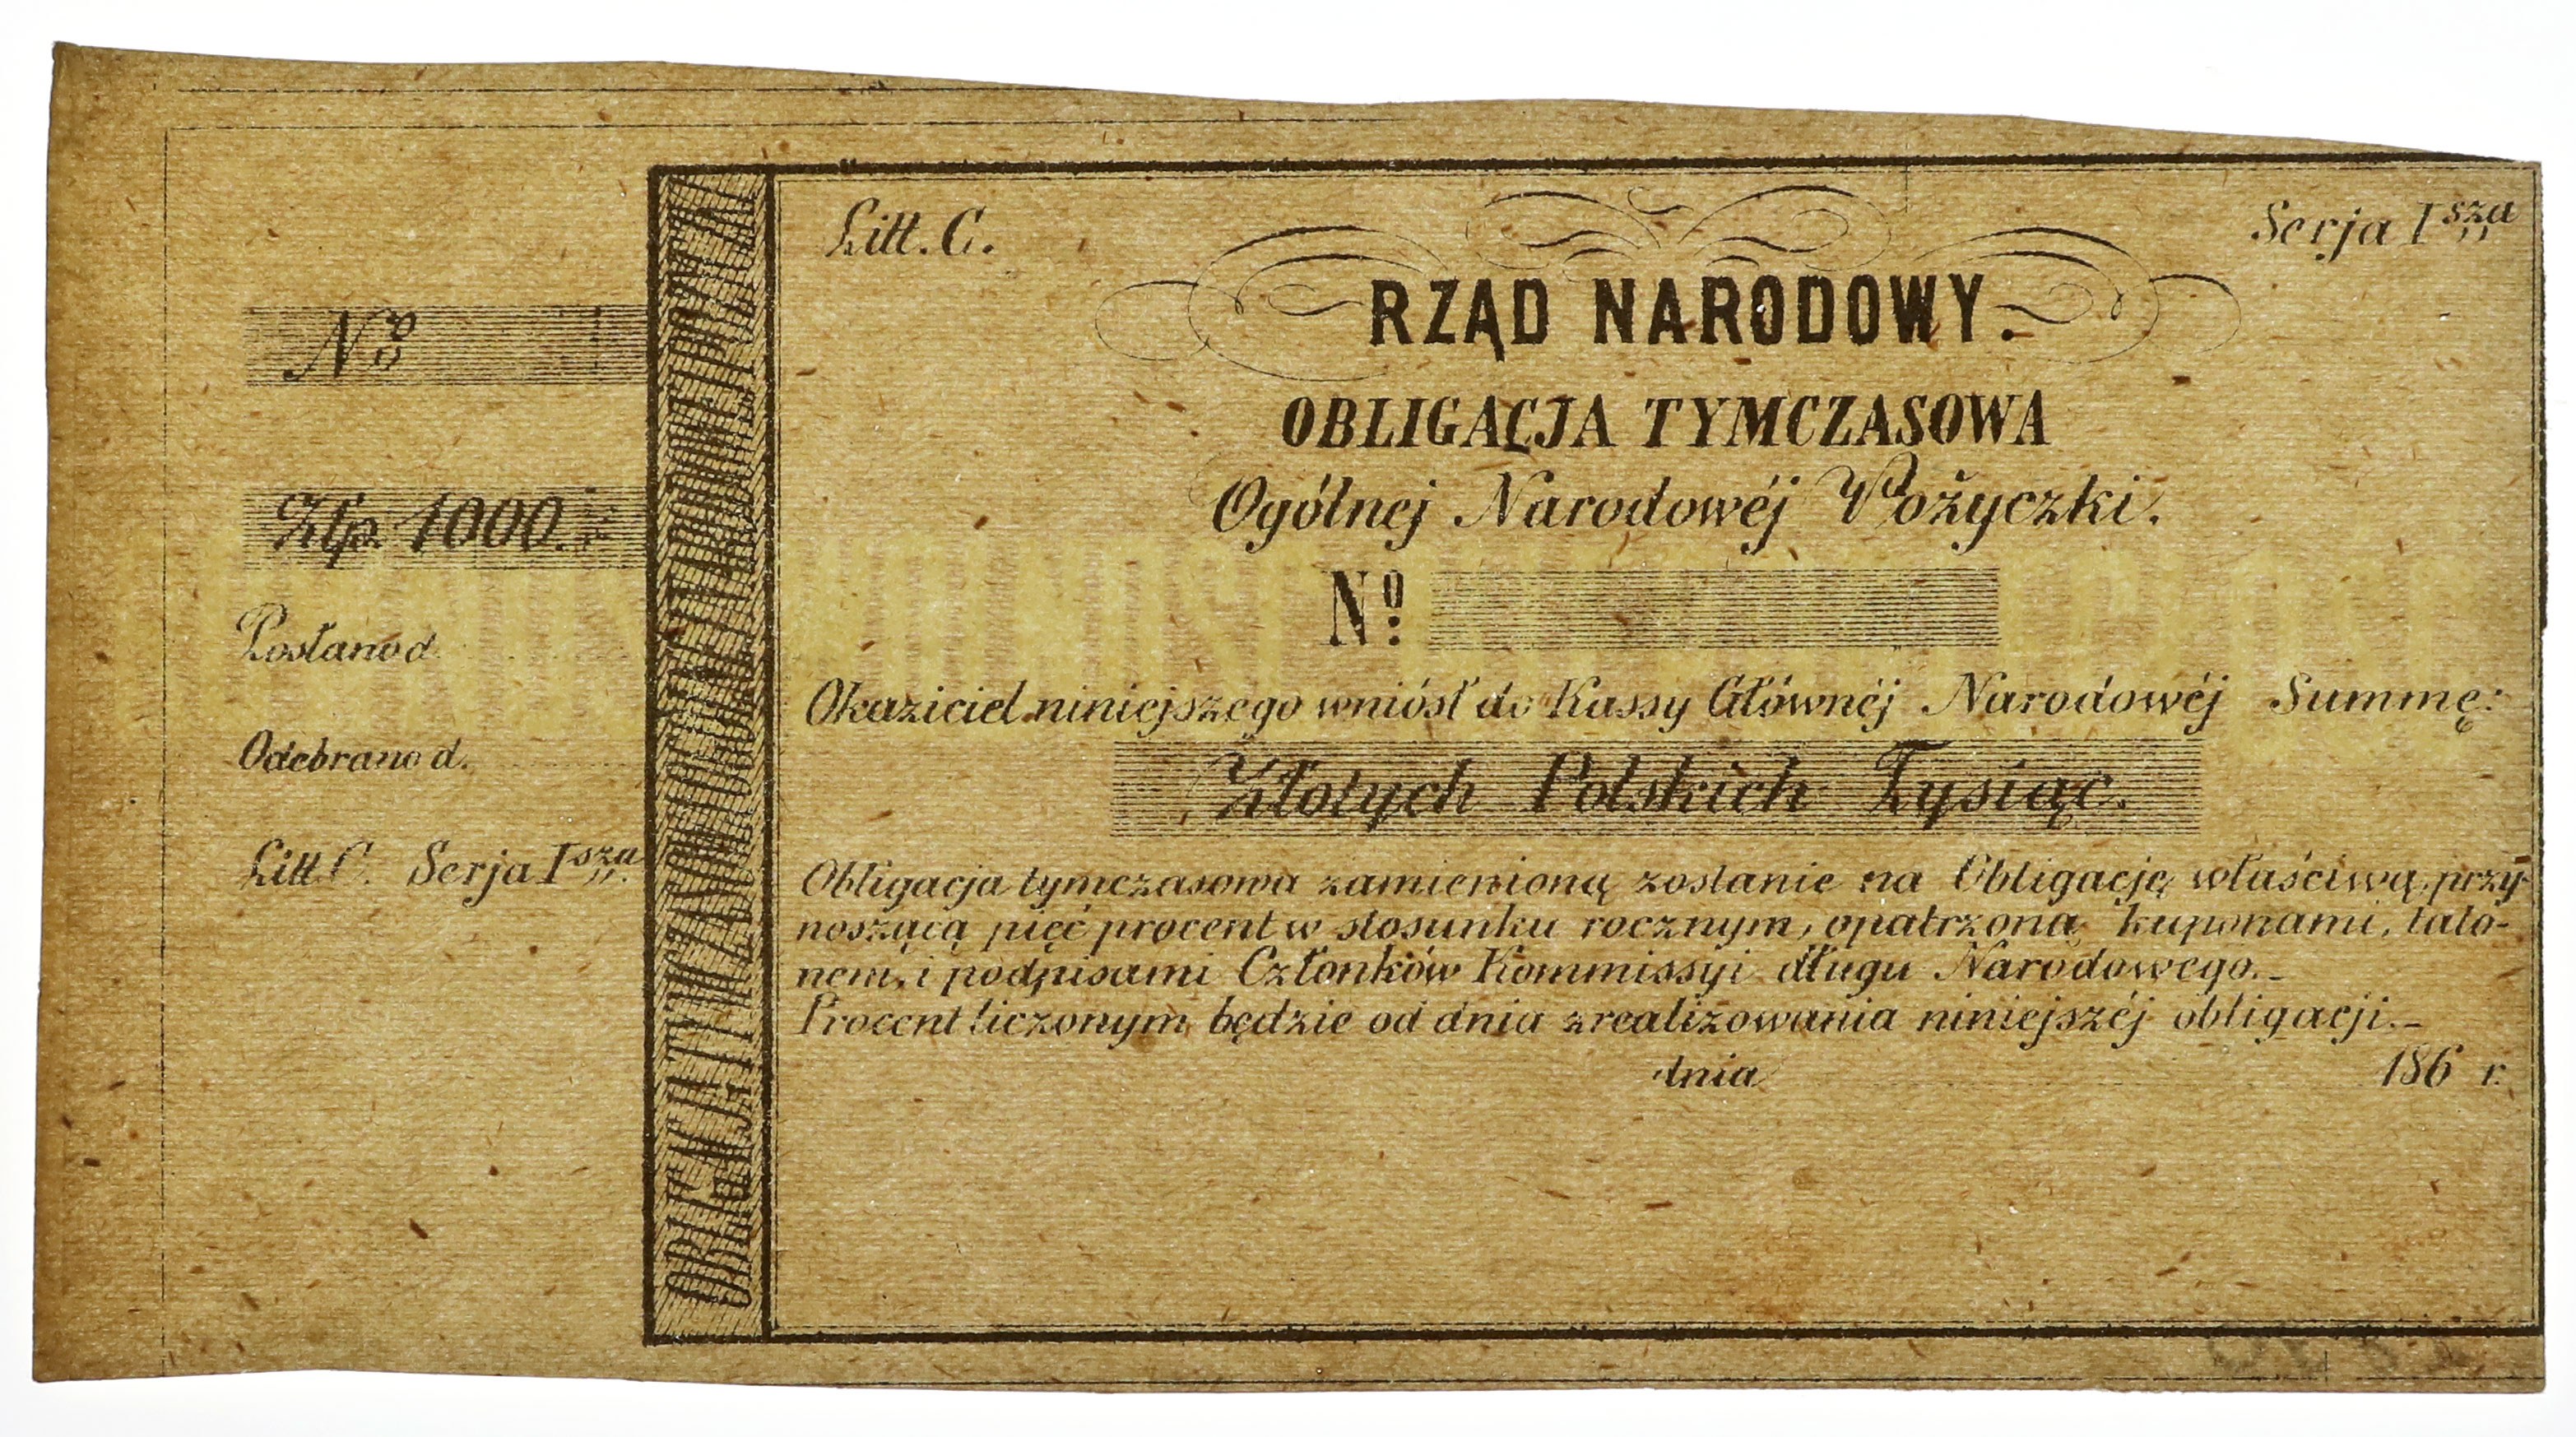 Nro
Złp. 1000.
Posłano d.
Odebrano d.
Litt. C. Serja Isza
OBLIGACJA TYMCZASOWA
Litt. C.
Serja Isza
RZĄD NARODOWY.
OBLIGACJA TYMCZASOWA
Ogólnej Narodowéj Pożyczki.
No
Okaziciel niniejszego wniósł do Kassy Głównéj Narodowéj Summę:
Złotych Polskich Tysiąc.
Obligacja tymczasowa zamienioną zostanie na Obligację właściwą, przy-
noszącą pięć procent w stosunku rocznym, opatrzoną kuponami, talo-
nem, i podpisami Członków Kommissyi długu Narodowego.-
Procent liczonym będzie od dnia zrealizowania niniejszéj obligacji.-
dnia 186 r.